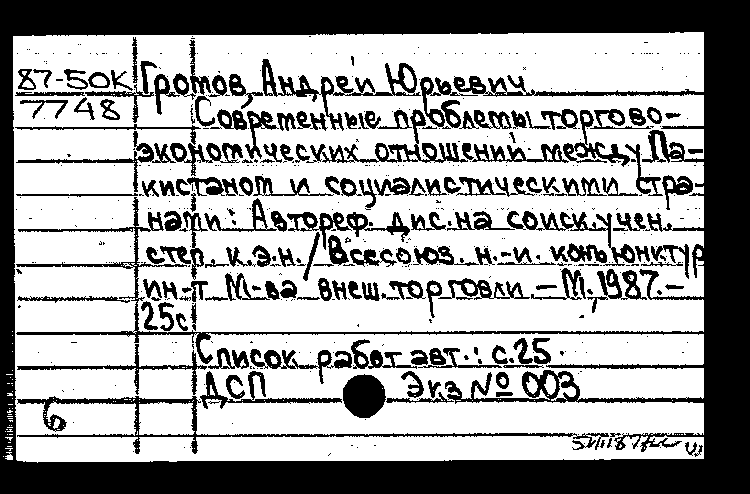 87-50К Громов, Андрей Юрьевич.
7748 Современные проблемы торгово-
экономических отношений между Па-
кистаном и социалистическими стра-
нами: Автореф. дис. на соиск. учен.
степ. к.э.н. / Всесоюз. н.-и. конъюнктур
ин-т М-ва внеш. торговли. — М., 1987. —
25с
Список работ авт.: с.25.
ДСП Экз № 003
6